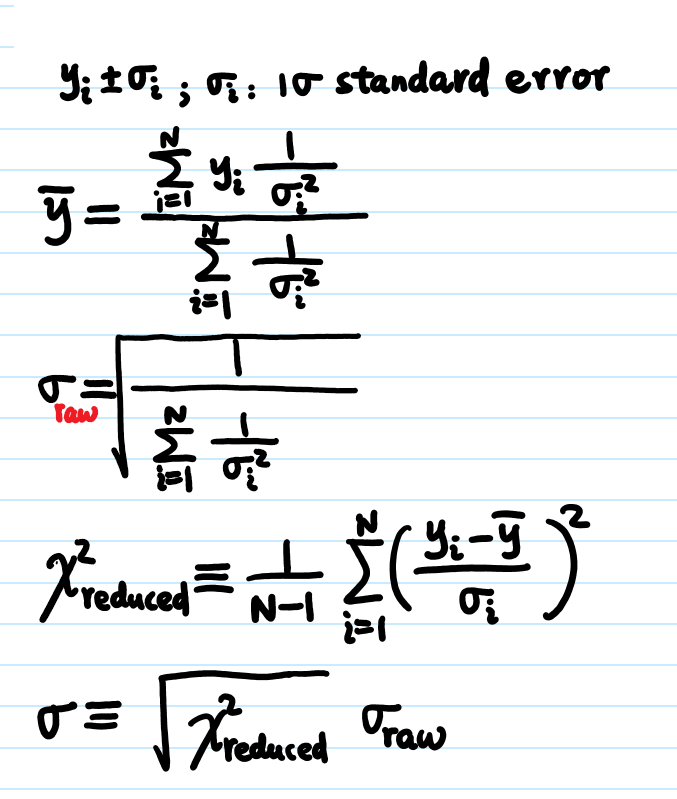 yᵢ ± σᵢ ; σᵢ : 1σ standard error
ȳ = (∑_{i=1}^{N} yᵢ 1/σᵢ²) / (∑_{i=1}^{N} 1/σᵢ²)
σ_raw = √(1 / (∑_{i=1}^{N} 1/σᵢ²))
χ²_reduced ≡ 1/(N−1) ∑_{i=1}^{N} ((yᵢ − ȳ)/σᵢ)²
σ ≡ √(χ²_reduced) σ_raw